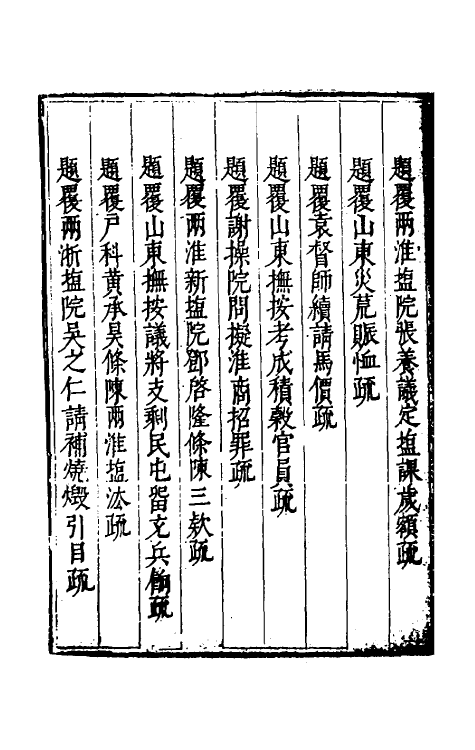 題覆兩淮塩院張養議定塩課歲額疏
題覆山東災荒賑恤疏
題覆袁督師續請馬價疏
題覆山東撫按考成積穀官員疏
題覆謝操院問擬淮商招罪疏
題覆兩淮新塩院鄧啓隆條陳三欵疏
題覆山東撫按議將支剩民屯留充兵餉疏
題覆戸科黄承昊條陳兩淮塩法疏
題覆兩浙塩院吴之仁請補燒燬引目疏